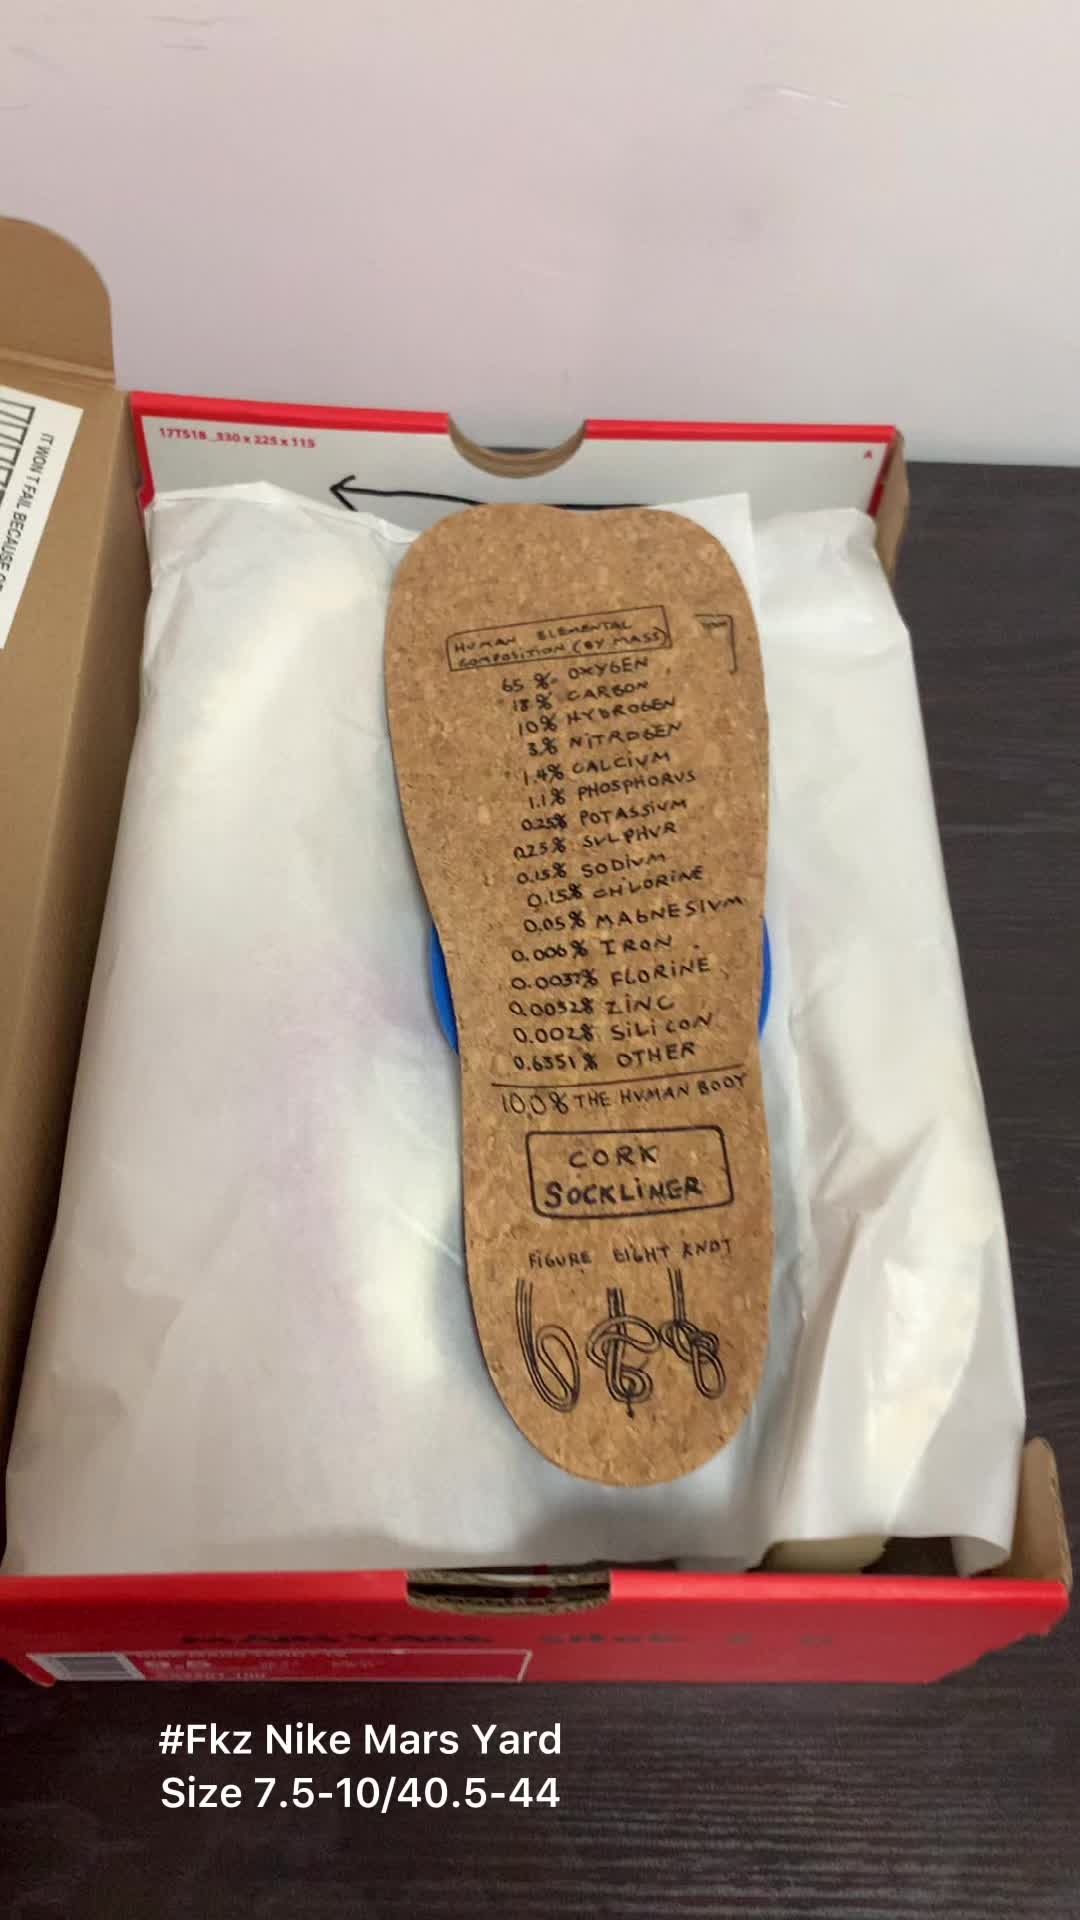 17T518_330 x 225 x 115
A
IT WON'T FAIL BECAUSE OF
HUMAN ELEMENTAL
COMPOSITION (BY MASS)
65 % OXYGEN
18 % CARBON
10% HYDROGEN
3% NITROGEN
1.4% CALCIUM
1.1% PHOSPHORUS
0.25% POTASSIUM
0.25% SULPHUR
0.15% SODIUM
0.15% CHLORINE
0.05% MAGNESIUM
0.006% IRON
0.0037% FLORINE
0.0032% ZINC
0.002% SILICON
0.6351% OTHER
100% THE HUMAN BODY
CORK
SOCKLINER
FIGURE EIGHT KNOT
#Fkz Nike Mars Yard
Size 7.5-10/40.5-44